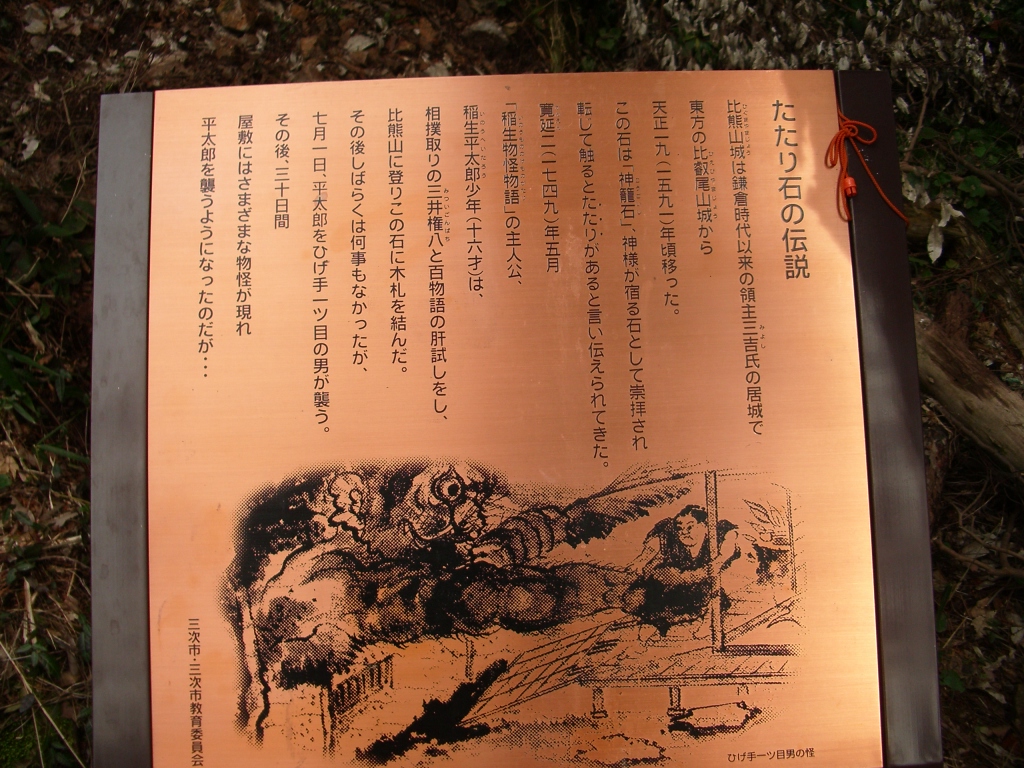 たたり石の伝説
比熊山城は鎌倉時代以来の領主三吉氏の居城で
東方の比叡尾山城から
天正一九(一五九一)年頃移った。
この石は「神籠石」、神様が宿る石として崇拝され
転して触るとたたりがあると言い伝えられてきた。
寛延二(一七四九)年五月
「稲生物怪物語」の主人公、
稲生平太郎少年(十六才)は、
相撲取りの三井権八と百物語の肝試しをし、
比熊山に登りこの石に木札を結んだ。
その後しばらくは何事もなかったが、
七月一日、平太郎をひげ手一ツ目の男が襲う。
その後、三十日間
屋敷にはさまざまな物怪が現れ
平太郎を襲うようになったのだが・・・
ひげ手一ツ目男の怪
三次市・三次市教育委員会